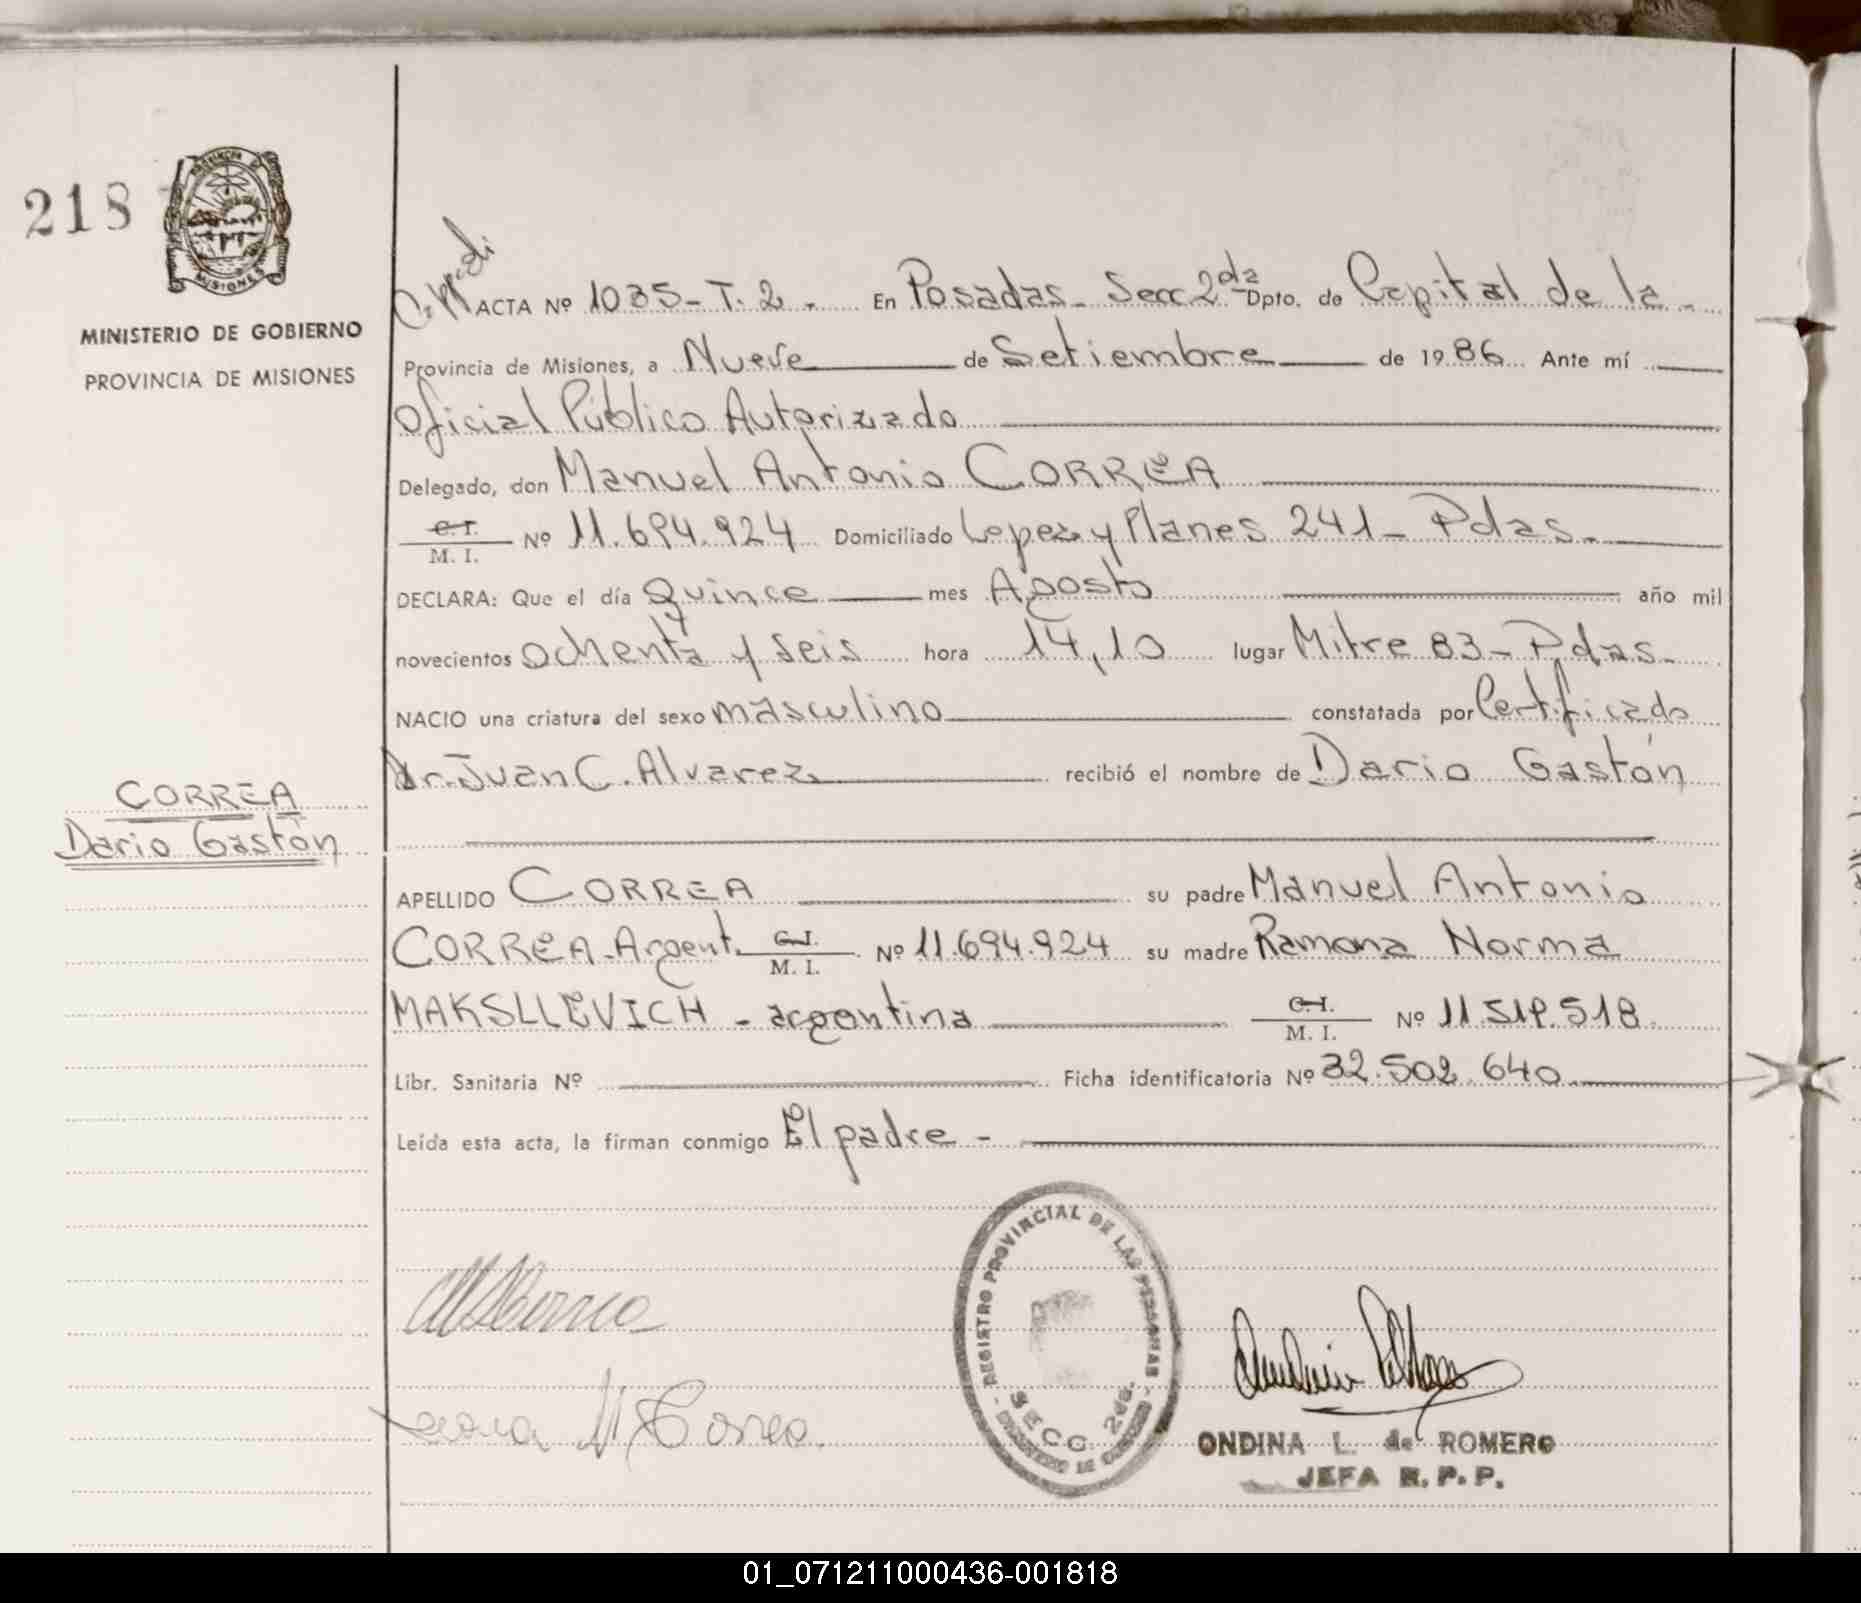 218
PROVINCIA DE
MISIONES
MINISTERIO DE GOBIERNO
PROVINCIA DE MISIONES
CORREA
Dario Gastón
ACTA Nº 1035-T.2. En Posadas- Secc 2da Dpto. de Capital de la
Provincia de Misiones, a Nueve de Setiembre de 1986 Ante mí
Oficial Público Autorizado
Delegado, don Manuel Antonio CORREA
C.I.
M. I. Nº 11.694.924 Domiciliado Lopez y Planes 241- Pdas.
DECLARA: Que el día Quince mes Agosto año mil
novecientos ochenta y seis hora 14,10 lugar Mitre 83- Pdas.
NACIO una criatura del sexo masculino constatada por Certificado
Dr. Juan C. Alvarez recibió el nombre de Dario Gastón
APELLIDO CORREA su padre Manuel Antonio
CORREA-Argent. C.I. M. I. Nº 11.694.924 su madre Ramona Norma
MAKSLLEVICH - argentina C.I. M. I. Nº 11.519.518
Libr. Sanitaria Nº Ficha identificatoria Nº 32.502.640
Leída esta acta, la firman conmigo El padre -
REGISTRO PROVINCIAL DE LAS PERSONAS
SECC. 2da.
Correa
ONDINA L. de ROMERO
JEFA R. P. P.
01_071211000436-001818